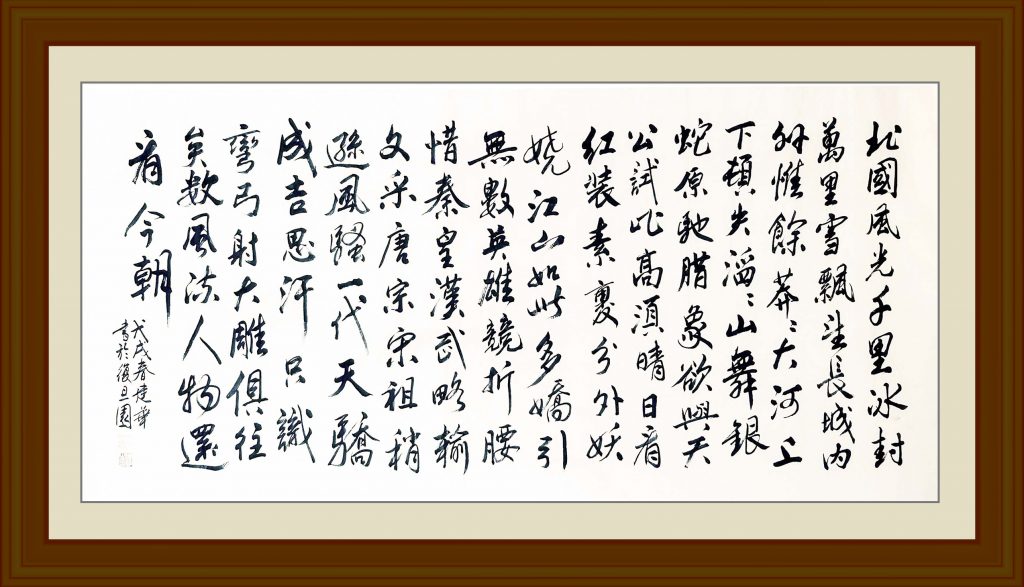 北國風光千里冰封
萬里雪飄望長城內
外惟餘莽〻大河上
下頓失滔〻山舞銀
蛇原馳腊象欲與天
公試比高須晴日看
紅裝素裹分外妖
嬈江山如此多嬌引
無數英雄競折腰
惜秦皇漢武略輸
文采唐宗宋祖稍
遜風騷一代天驕
成吉思汗只識
彎弓射大雕俱往
矣數風流人物還
看今朝
戊戌春建華
書於復旦園